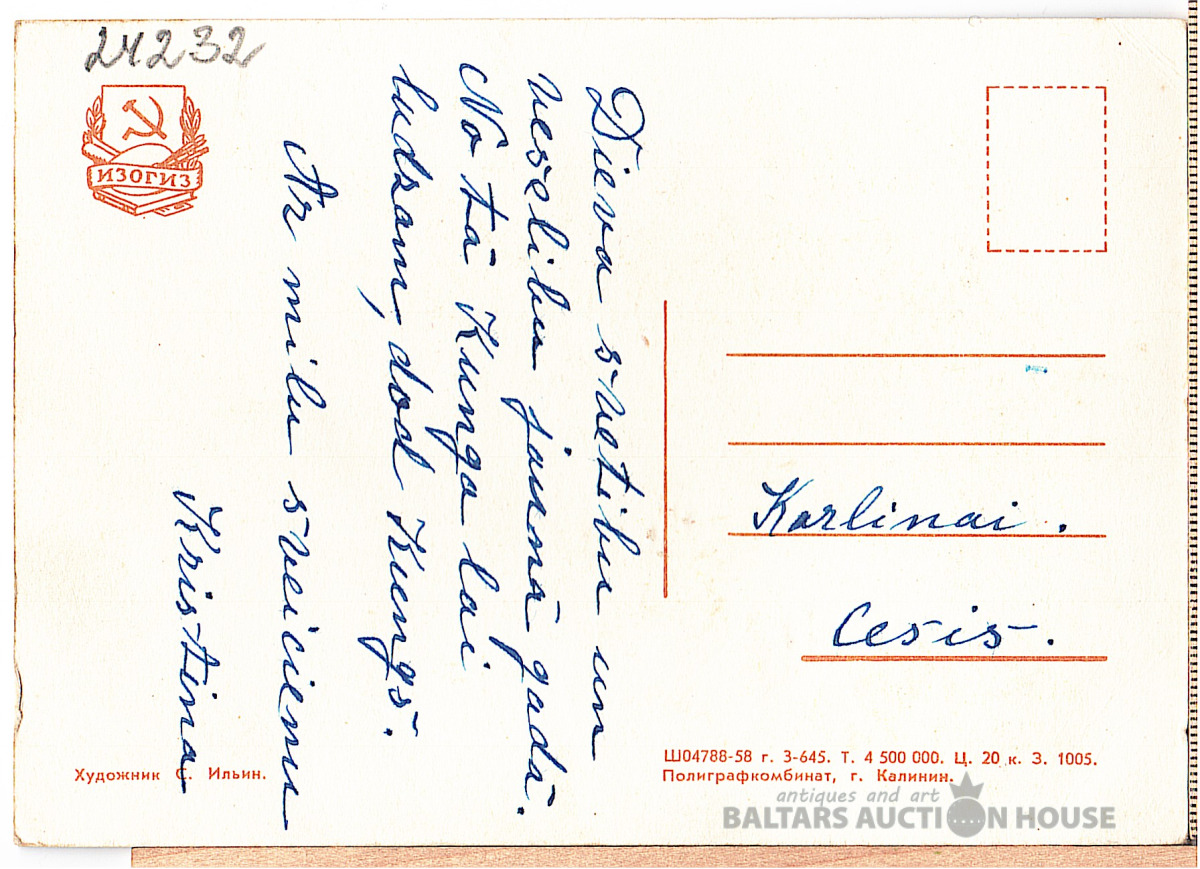 24232
ИЗОГИЗ
Dieva svetibu un
veselibu jaunā gadā.
No tā Kunga lai
ludzam, dod Kungs.
Ar milu sveicienu
Kristina
Karlinai.
Cesis.
Художник С. Ильин.
Ш04788-58 г. 3-645. Т. 4 500 000. Ц. 20 к. З. 1005.
Полиграфкомбинат, г. Калинин.
antiques and art
BALTARS AUCTION HOUSE